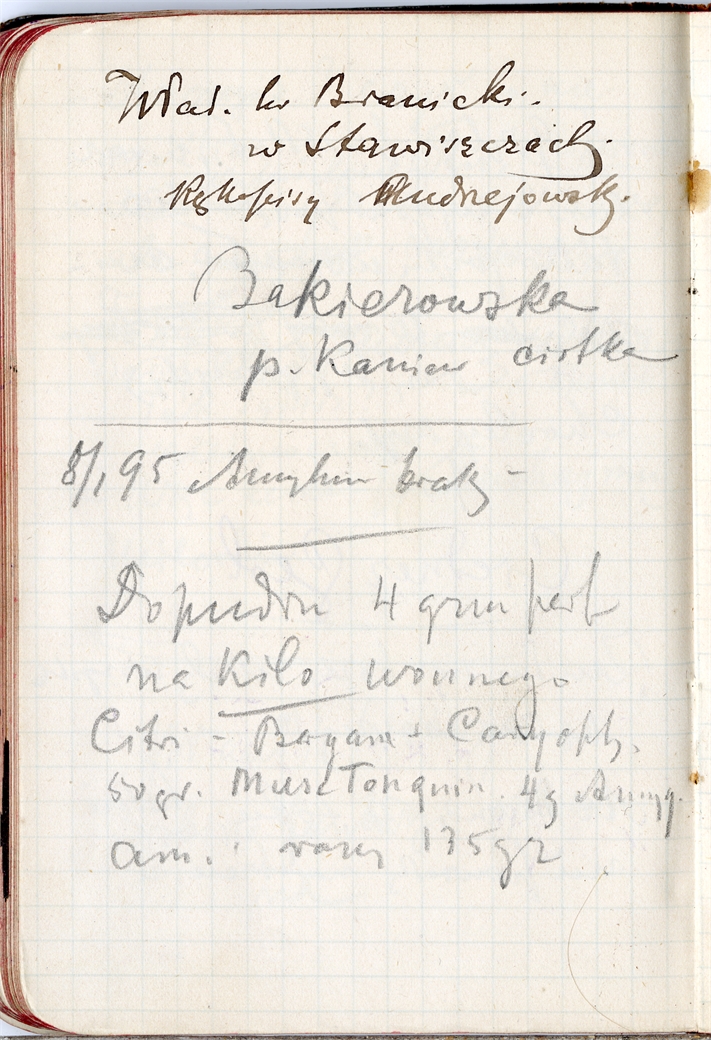 Wład. hr Branicki.
w Stawiszczach.
Rękopisy Andrzejowsk.
Bakierowska
p. Kaniew ciotka
8/1 95 Amylum braky -
Do pudru 4 grm perf
na Kilo wonnego
Citri - Bergam + Caryoph.
50 gr. Musc Tonquin. 4g Amyg.
am. róży 175 gr